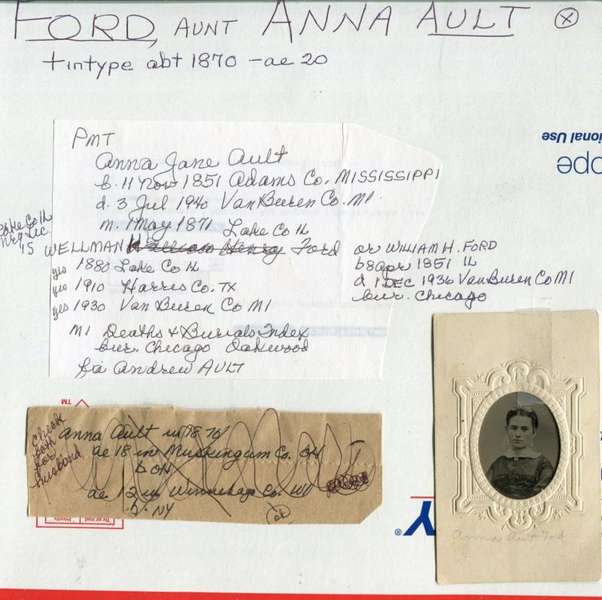 FORD, AUNT ANNA AULT
tintype abt 1870 - ae 20
ional Use
ope
PMT
Anna Jane Ault
b. 11 Nov 1851 Adams Co. MISSISSIPPI
d. 3 Jul 1940 Van Buren Co. MI.
m. 1 May 1871 Lake Co IL
Lake Co IL
is WELLMAN William Henry Ford
or WILLIAM H. FORD
b 8 apr 1851 IL
d 1 DEC 1936 Van Buren Co MI
bur. Chicago
yes 1880 Lake Co IL
yes 1910 Harris Co. TX
yes 1930 Van Buren Co MI
MI Deaths & Burials Index
bur. Chicago Oakwood
fa Andrew AULT
check
both
for
husband
Anna Ault in 1870
ae 18 in Muskingum Co. OH
b OH
ae 12 in Winnebago Co. WI
b. NY
TM
Y®
Anna Ault Ford